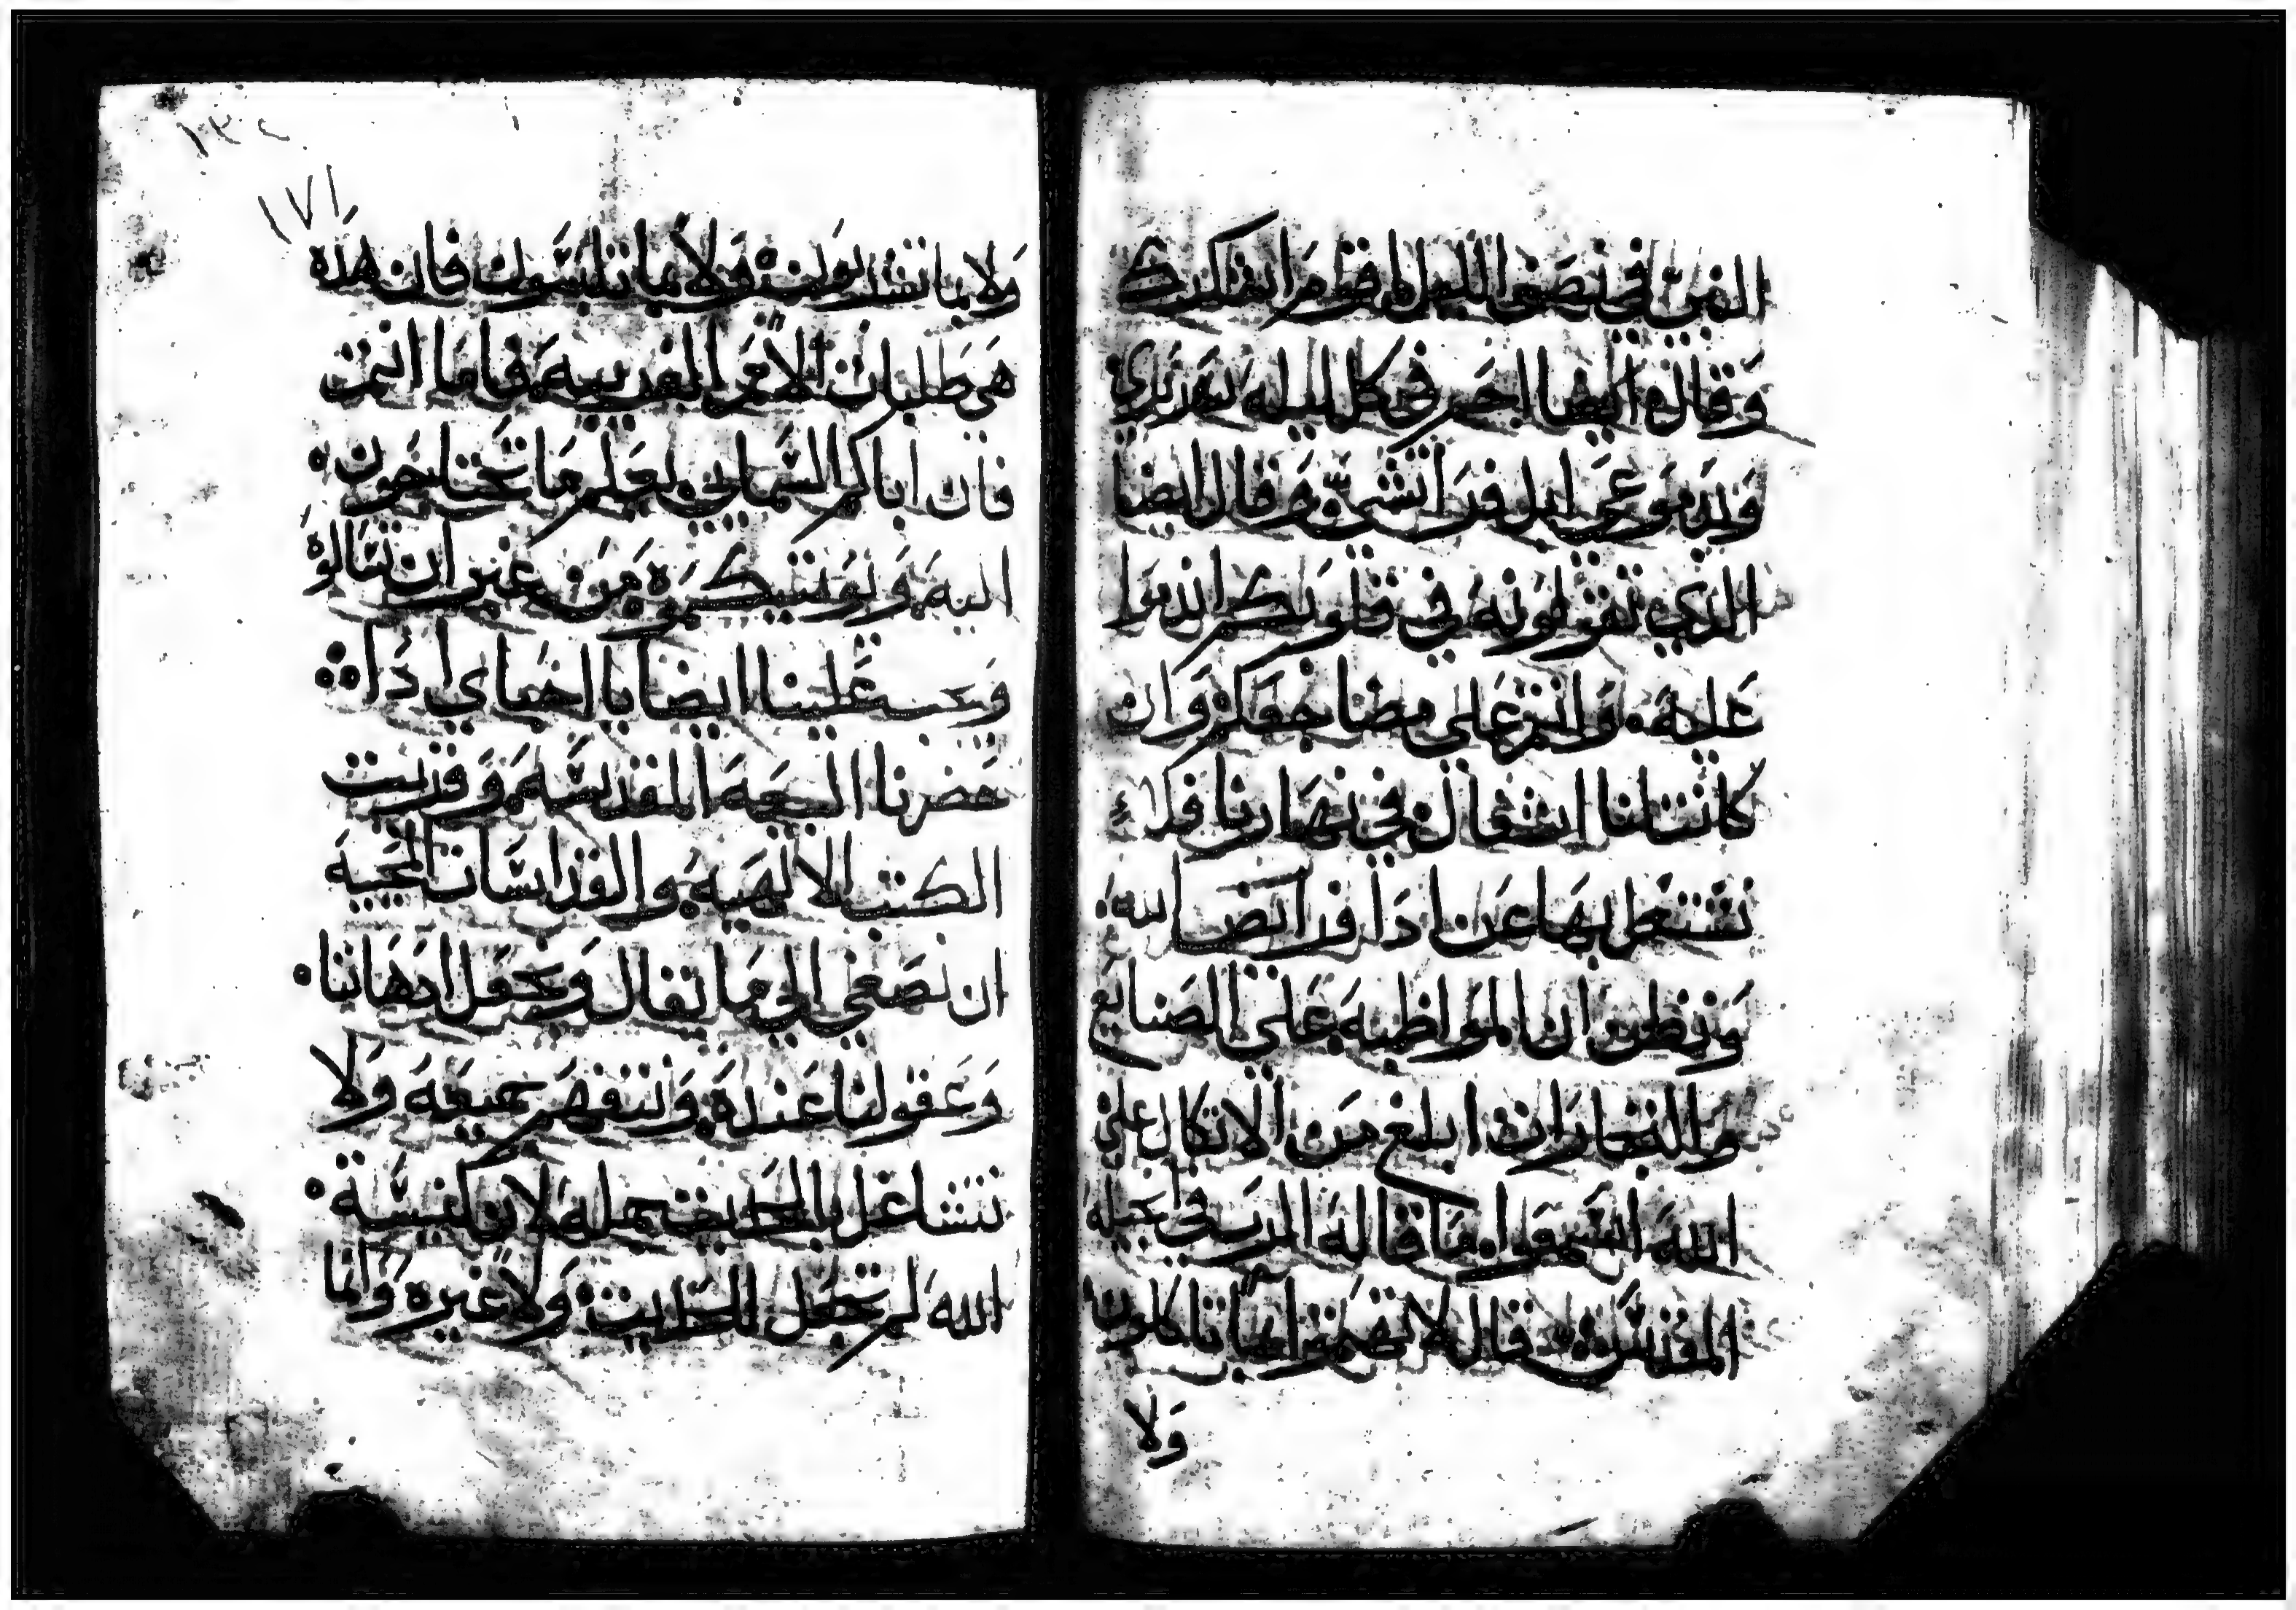 النبي في نصف الليل اقوم اشكرك
وقال ايضا احم في كل ليله سريري
وبدموعي ابل فراشي وقال ايضا
الذي تقولونه في قلوبكم اندموا
عليه وانتم علي مضاجعكم وان
كانت لنا اشغال في نهارنا فلا
نشتغل بها عن ادا فرايض الله
ونظن ان المواظبه علي الصنايع
والتجارات ابلغ من الاتكال علي
الله اسمعوا ما قاله الرب في انجيله
المقدس قال لا تهتموا بما تاكلون
ولا
١٣٤
١٧١
ولا بما تشربون ولا بما تلبسون فان هذه
هي طلبات الامم الغريبه فاما انتم
فان اباكم السماىي يعلم ما تحتاجون
اليه ويوتيكموه من غير ان تسالوه
ويجب علينا ايضا يا احباي اذا
حضرنا البيعه المقدسه وقريت
الكتب الالهيه والقداسات المحييه
ان نصغي الي ما تقال ونجعل اذهاننا
وعقولنا عنده ونتفهم جميعه ولا
نتشاغل بالحديث جمله لان كنيسة
الله لم تجعل للحديث ولا غيره وانما